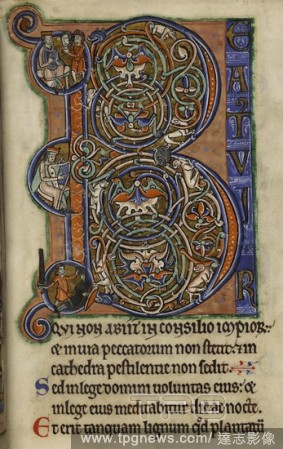 B
EATVS VIR
QVI NON ABIIT IN CONSILIO IMPIOR
& in uia peccatorum non stetit: & in
cathedra pestilentie non sedit.
Sed in lege domini uoluntas eius: &
in lege eius meditabitur die ac nocte.
Et erit tanquam lignum quod plantatũ
www.tpgnews.com / 達志影像